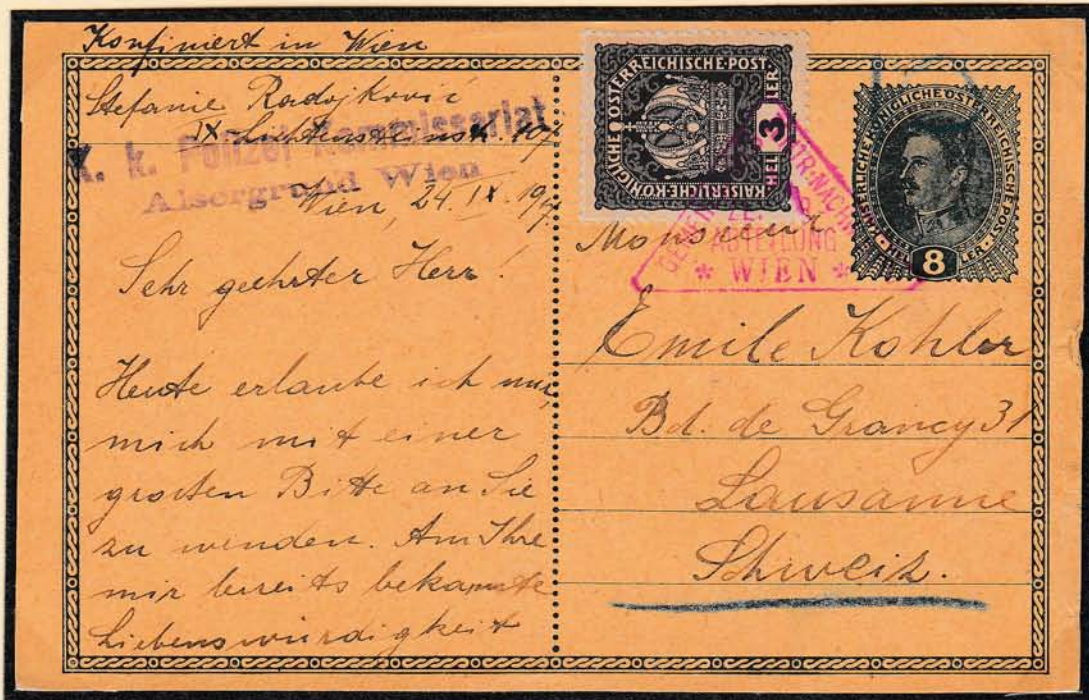 Konfiniert in Wien
Stefanie Radojković
IX
K. k. Polizei-Kommissariat
Alsergrund Wien
Wien, 24. IX. 1917
Sehr geehrter Herr!
Heute erlaube ich mir,
mich mit einer
großen Bitte an Sie
zu wenden. Am Ihre
mir bereits bekannte
Liebenswürdigkeit
KAISERLICHE KÖNIGLICHE ÖSTERREICHISCHE POST
HELLER
3
KAISERLICHE KÖNIGLICHE ÖSTERREICHISCHE POST
8
ABTEILUNG
* WIEN *
Monsieur
Emile Kohler
Bd. de Grancy 31
Lausanne
Schweiz.